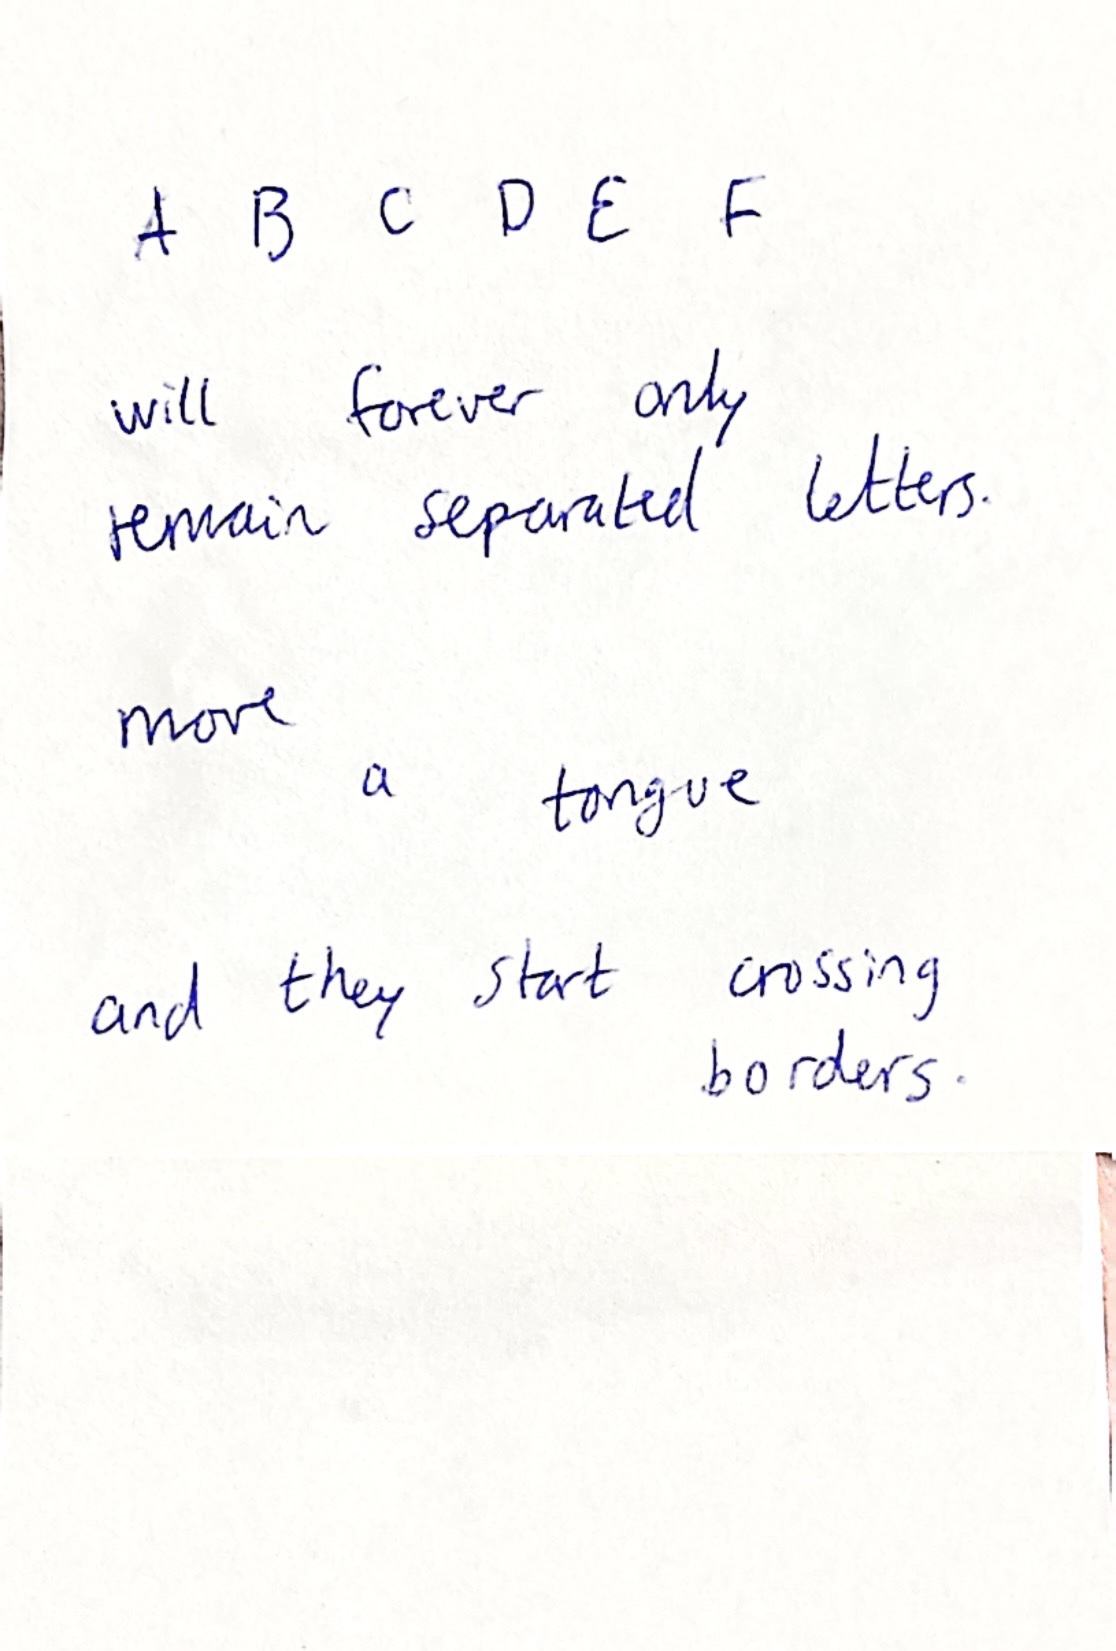 A B C D E F
will forever only
remain separated letters.
move
a tongue
and they start crossing
borders.